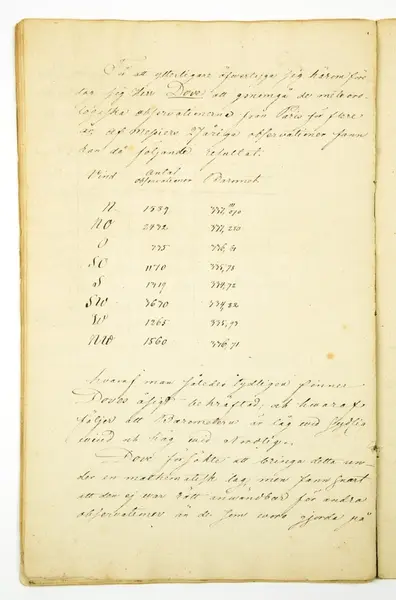 För att ytterligare öfvertyga sig härom före
tar sig Herr Dove att genomgå de meteoro-
logiska observationerna från Paris för flere
år. Af Messiers 27åriga observationer fann
han då följande resultat.
Vind Antal observationer Baromet.
N 1339
NO 2972
O 775 336,61
SO 1170 335,78
S 1719
SW 3670
W 1265 335,
NW 1560 336,71
hvaraf man således tydligen finner
Doves åsigt bekräftad, och hvaraf
följer att Barometern är låg med sydlig
vind och hög med Nordlig.
Dove försökte att bringa detta un-
der en mathematisk lag, men fann snart
att den ej var rätt användbar för andra
observationer än de som voro gjorda på